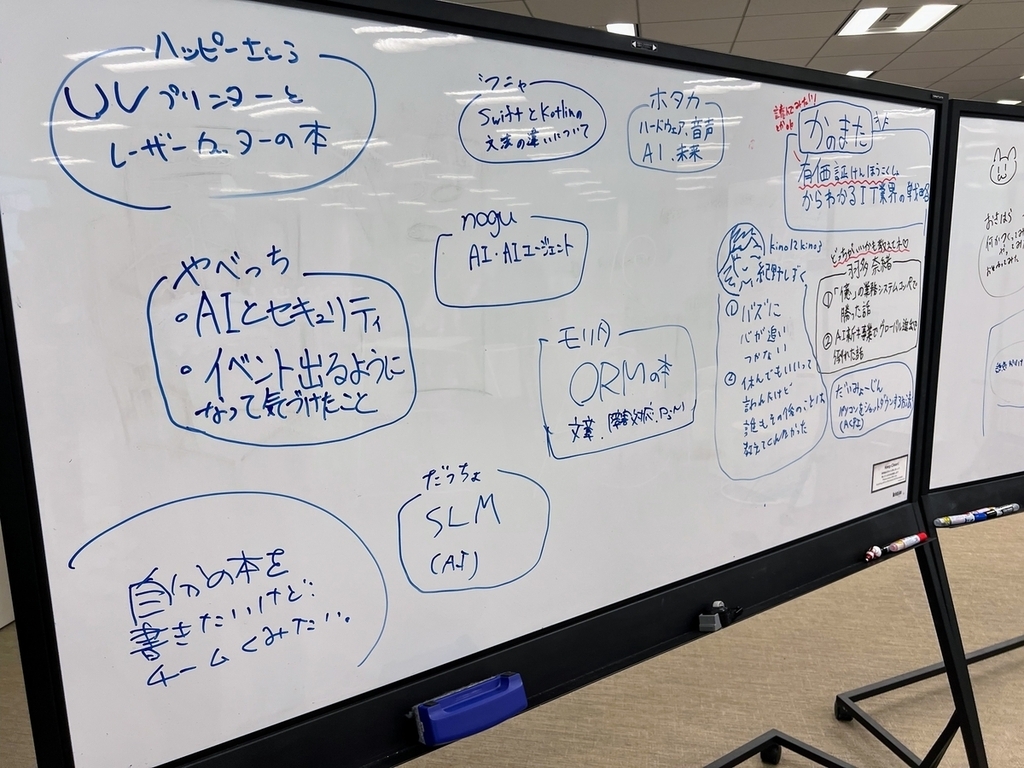 ハッピーさとう
UVプリンターと
レーザーカッターの本
SwiftとKotlinの
文法の違いについて
ホタカ
ハードウェア、音声
AI、未来
かのまた
有価証けんほうこくしょ
からわかるIT業界の戦略
nogu
AI・AIエージェント
やべっち
・AIとセキュリティ
・イベント出るように
なって気づけたこと
モリタ
ORMの本
文章、障害対応、
kino12kino3
紀野しずく
① バズに
心が追い
つかない
② 休んでもいいって
言わんけど
誰もその後のことは
教えてくんなかった
どっちがいいかも教えてネ
羽多 奈緒
①「俺」の業務システムコンペで
勝った話
② AI新事業でグローバル進出で
だいみょーじん
パソコンをシャットダウンする方法
だっちょ
SLM
(AI)
自分の本を
書きたいけど
チームくみたい。
おぎはら